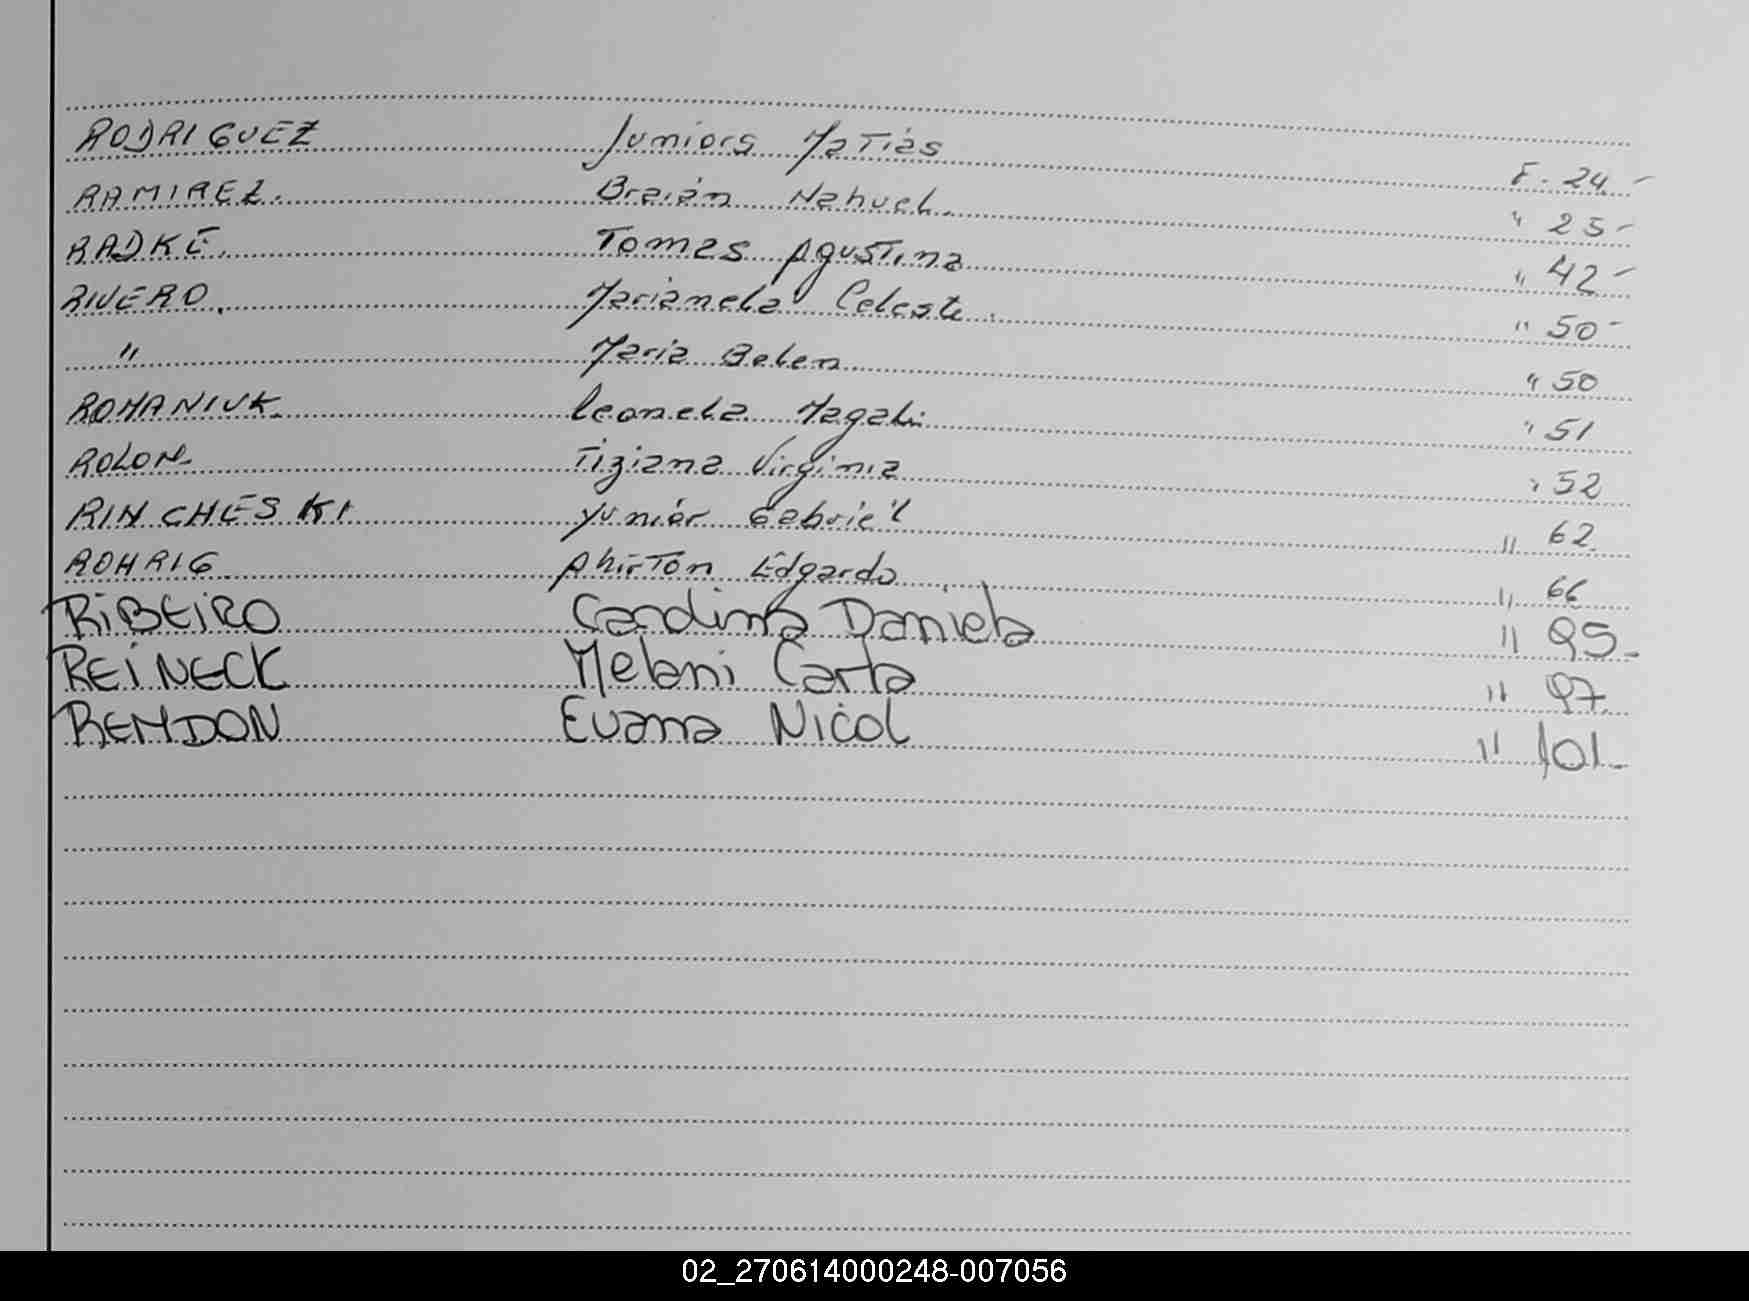 RODRIGUEZ Juniors Matias F. 24-
RAMIREZ. Braian Nahuel. " 25-
RADKE. Tomas Agustina " 42-
RIVERO. Marianela Celeste. " 50-
" Maria Belen " 50
ROMANIUK Leonela Magali " 51
ROLON Tiziana Virginia " 52
RINCHESKI Yunior Gabriel " 62
ROHRIG Ahirton Edgardo " 66
RiBEiRO Carolina Daniela " 95-
REiNECK Melani Carla " 97
RENDON Evana Nicol " 101-
02_270614000248-007056